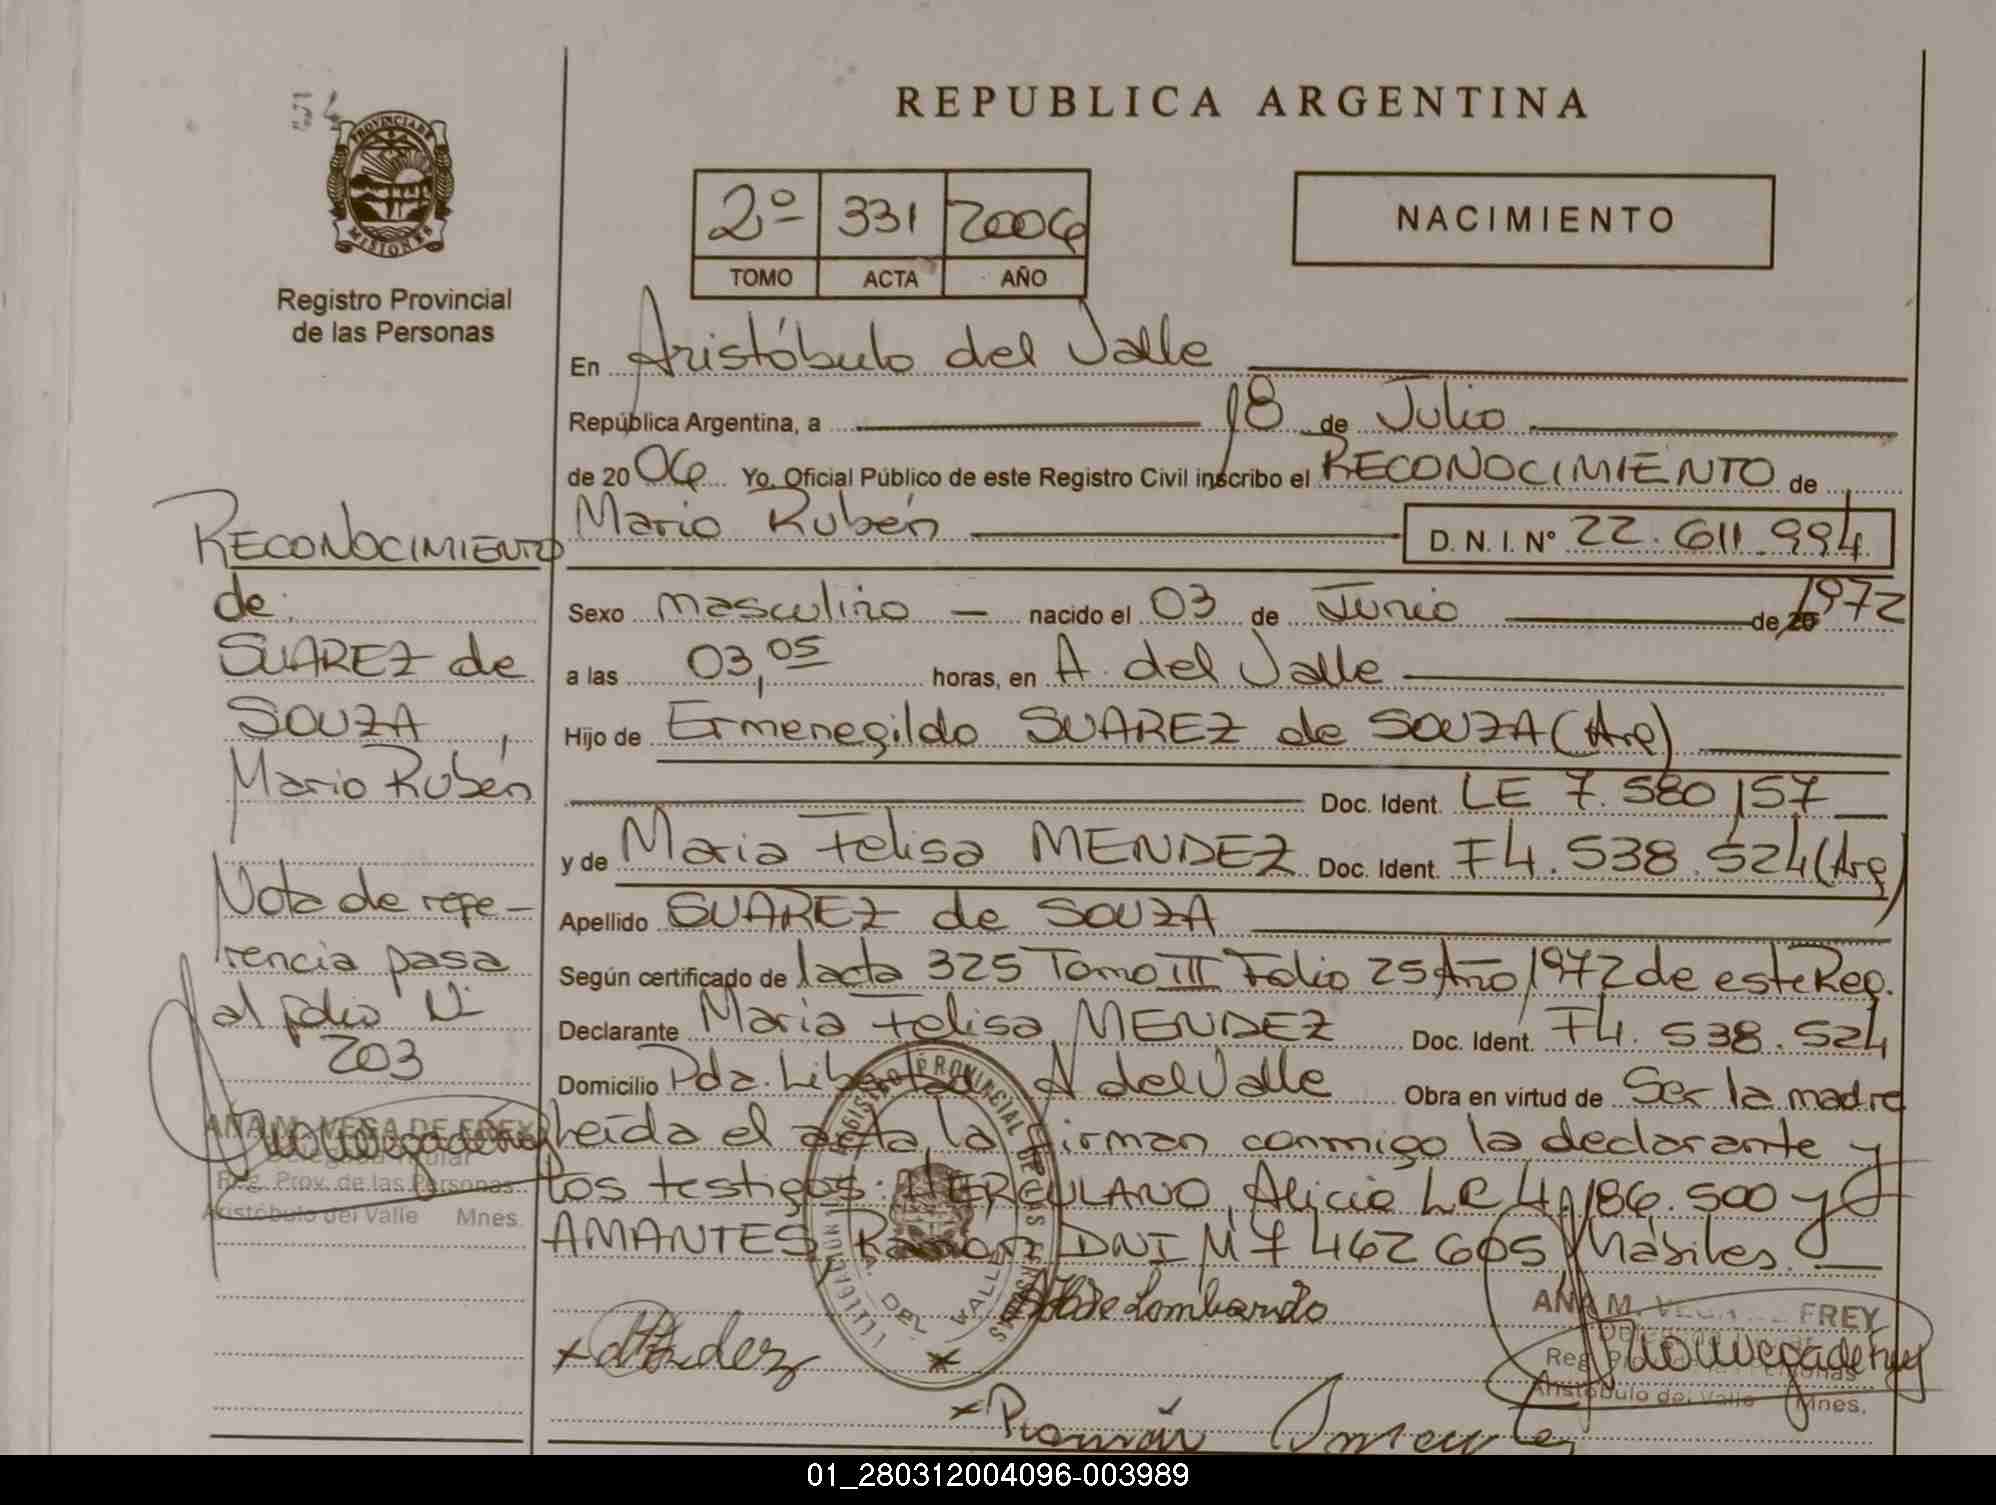 54
PROVINCIA DE
MISIONES
Registro Provincial
de las Personas
REPUBLICA ARGENTINA
2º 331 2006
TOMO ACTA AÑO
NACIMIENTO
En Aristóbulo del Valle
República Argentina, a 18 de Julio
de 2006 Yo, Oficial Público de este Registro Civil inscribo el RECONOCIMIENTO de
Mario Rubén D. N. I. Nº 22.611.994
Sexo masculino nacido el 03 de Junio de 20 1972
a las 03,05 horas, en A. del Valle
Hijo de Ermenegildo SUAREZ de SOUZA (Arg)
Doc. Ident. LE 7.580.157
y de Maria Felisa MENDEZ Doc. Ident. F4.538.524 (Arg)
Apellido SUAREZ de SOUZA
Según certificado de acta 325 Tomo III Folio 25 Año 1972 de este Reg.
Declarante Maria Felisa MENDEZ Doc. Ident. F4.538.524
Domicilio Pda. Libertad A del Valle Obra en virtud de Ser la madre
Leída el acta, la firman conmigo la declarante y
los testigos: HERCULANO, Alicia LC 4.186.500 y
AMANTES, Ramon DNI M 7 462 605 Habiles.
RECONOCIMIENTO
de:
SUAREZ de
SOUZA,
Mario Rubén
Nota de refe-
rencia pasa
al folio Nº
203
ANA M. VEGA DE FREY
Delegada Titular
Reg. Prov. de las Personas
Aristóbulo del Valle Mnes.
REGISTRO PROVINCIAL DE LAS PERSONAS
A. DEL VALLE
de Lombardo
x Mendez
ANA M. VEGA DE FREY
Reg. Prov. de las Personas
Aristóbulo del Valle Mnes.
x Román
01_280312004096-003989